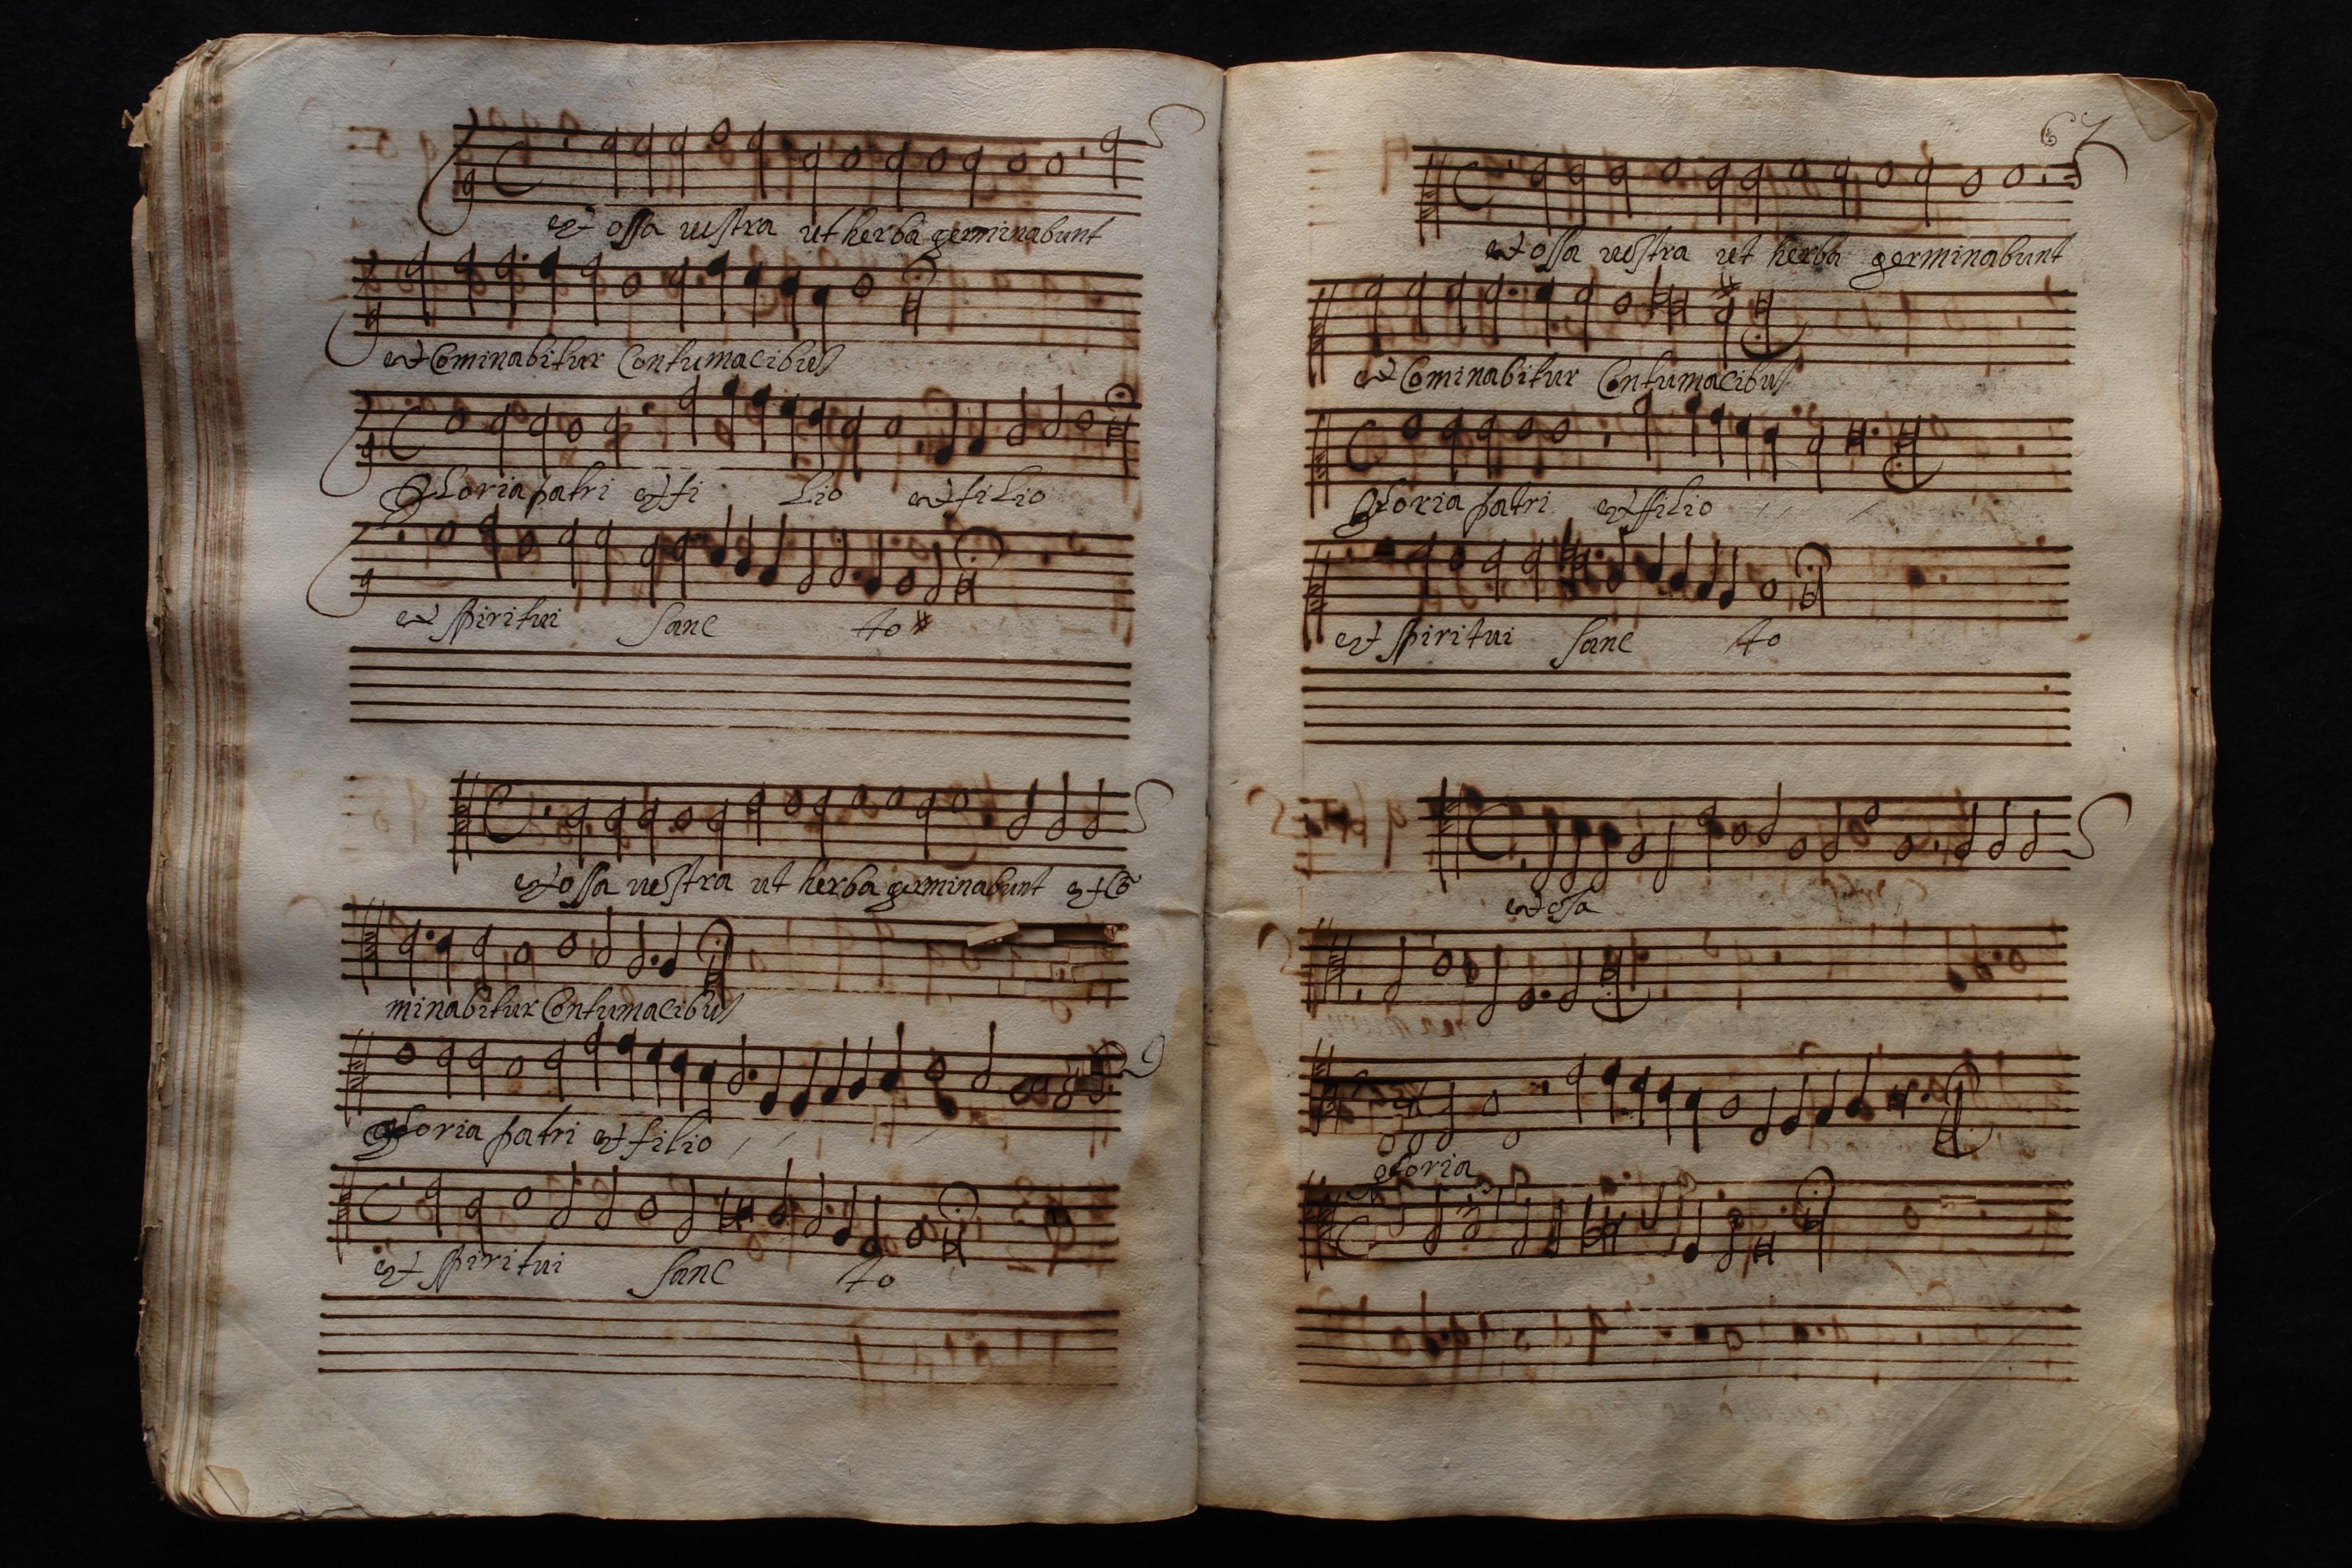 et ossa vestra ut herba germinabunt
et Cominabitur Contumacibus
Gloria patri et fi lio et filio
et spiritui sanc to
et ossa vestra ut herba germinabunt et Co
minabitur Contumacibus
gloria patri et filio
et spiritui sanc to
67
et ossa vestra ut herba germinabunt
et Cominabitur Contumacibus
Gloria patri et filio
et spiritui sanc to
et osa
gloria